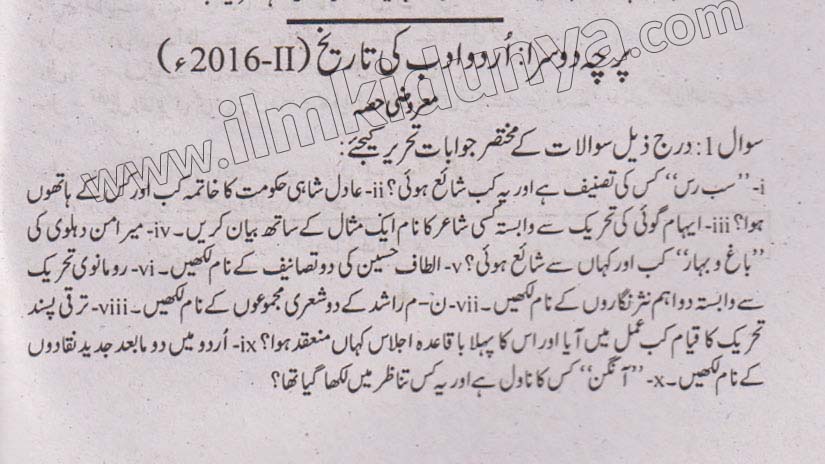 پرچہ دوسرا: اُردو ادب کی تاریخ (2016-II ء)
معروضی حصہ
سوال 1: درج ذیل سوالات کے مختصر جوابات تحریر کیجئے:
i- ’’سب رس‘‘ کس کی تصنیف ہے اور یہ کب شائع ہوئی؟ ii- عادل شاہی حکومت کا خاتمہ کب اور کس کے ہاتھوں
ہوا؟ iii- ایہام گوئی کی تحریک سے وابستہ کسی شاعر کا نام ایک مثال کے ساتھ بیان کریں۔ iv- میر امن دہلوی کی
’’باغ و بہار‘‘ کب اور کہاں سے شائع ہوئی؟ v- الطاف حسین کی دو تصانیف کے نام لکھیں۔ vi- رومانوی تحریک
سے وابستہ دو اہم نثر نگاروں کے نام لکھیں۔ vii- ن-م راشد کے دو شعری مجموعوں کے نام لکھیں۔ viii- ترقی پسند
تحریک کا قیام کب عمل میں آیا اور اس کا پہلا باقاعدہ اجلاس کہاں منعقد ہوا؟ ix- اُردو میں دو مابعد جدید نقادوں
کے نام لکھیں۔ x- ’’آنگن‘‘ کس کا ناول ہے اور یہ کس تناظر میں لکھا گیا تھا؟
www.ilmkidunya.com